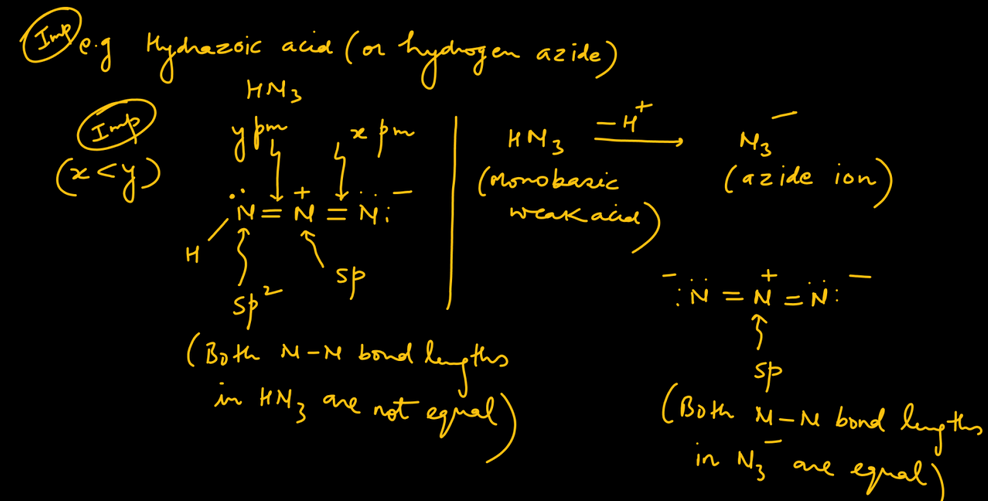 Imp e.g Hydrazoic acid (or hydrogen azide)
HN₃
Imp
(x < y)
y pm x pm
H N̈ = N⁺ = N̈:⁻
sp² sp
(Both N–N bond lengths
in HN₃ are not equal)
HN₃ –H⁺ → N₃⁻
(Monobasic
weak acid)
(azide ion)
⁻:N̈ = N⁺ = N̈:⁻
sp
(Both N–N bond lengths
in N₃⁻ are equal)